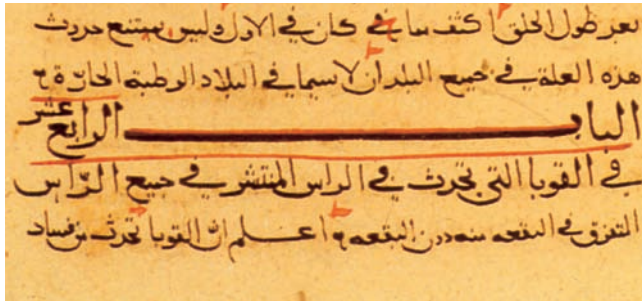 بعد طول الحلق اكثف مما في كان في الاول وليس يمتنع حدوث
هذه العلة في جميع البلدان لا سيما في البلاد الرطبة الحارة
الباب الرابع عشر
في القوبا التي تحدث في الراس المنتشر في جميع الراس
المتفرق في البقعه منه دون البقعه اعلم ان القوبا تحدث من فساد